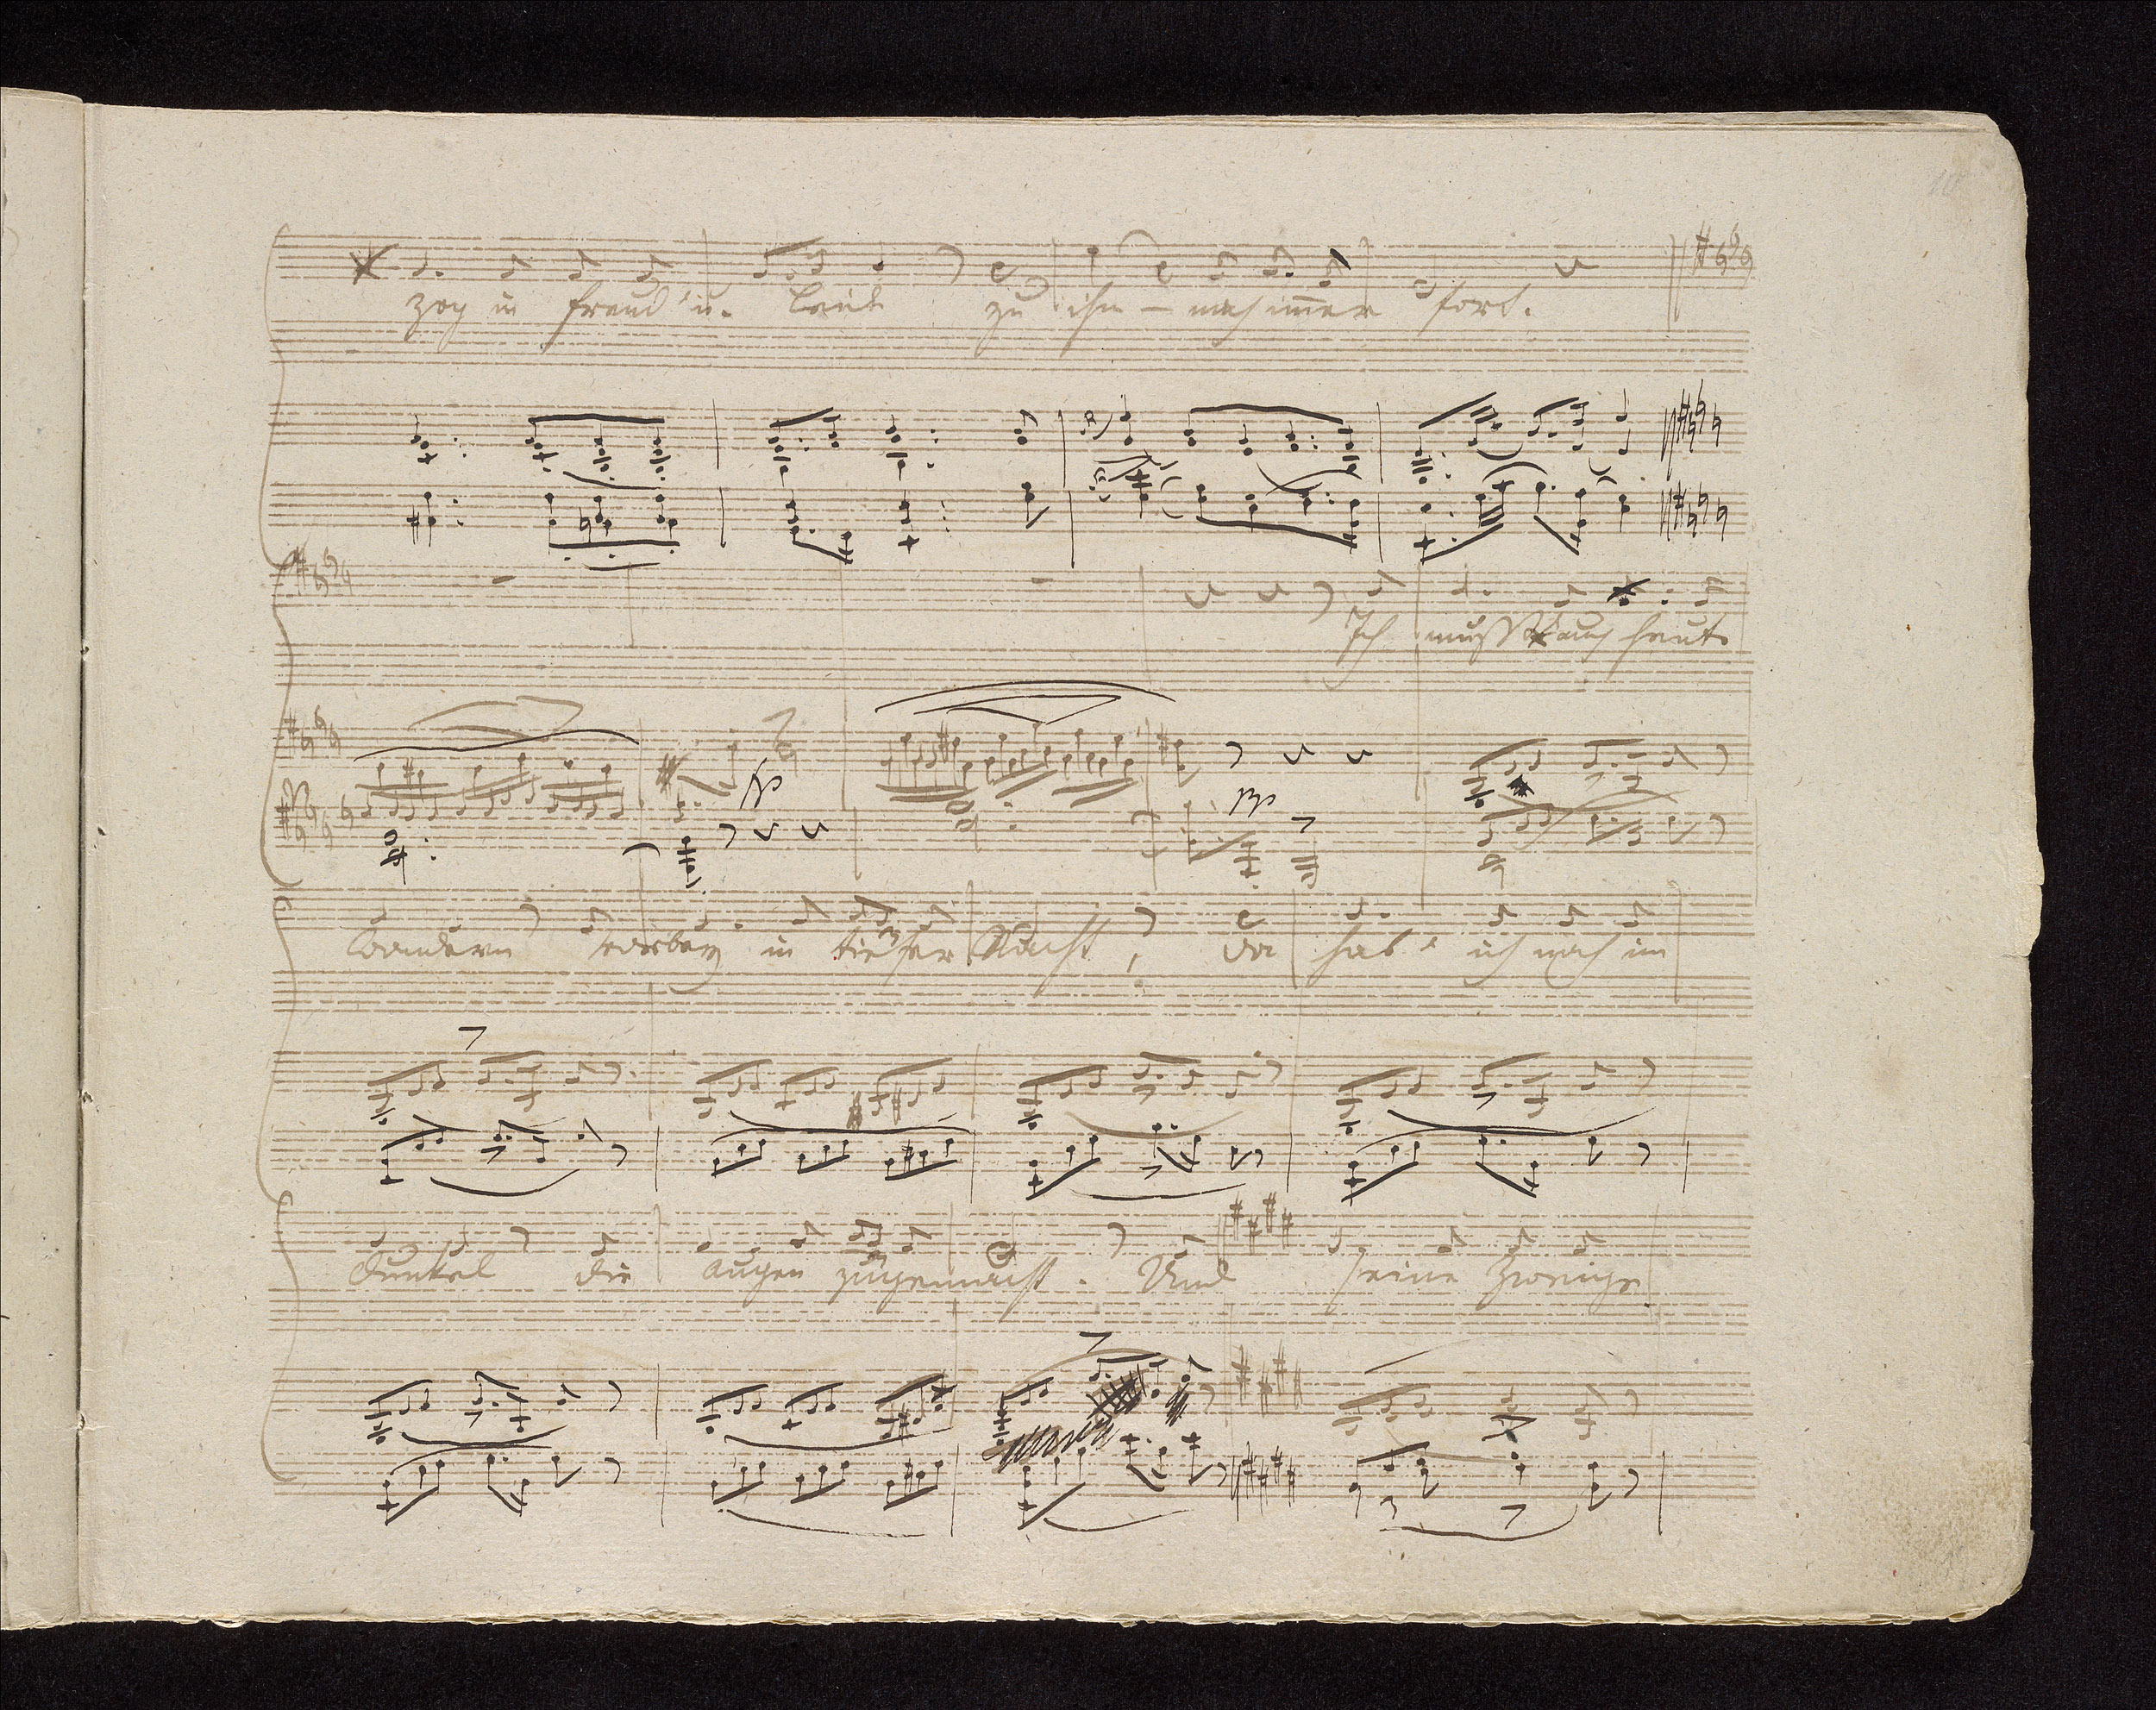 zog in Freud' u. Leide zu ihm – mich immer fort.
Ich mußt auch heute
wandern vorbey in tiefer Nacht, da hab' ich noch im
Dunkel die Augen zugemacht. Und seine Zweige